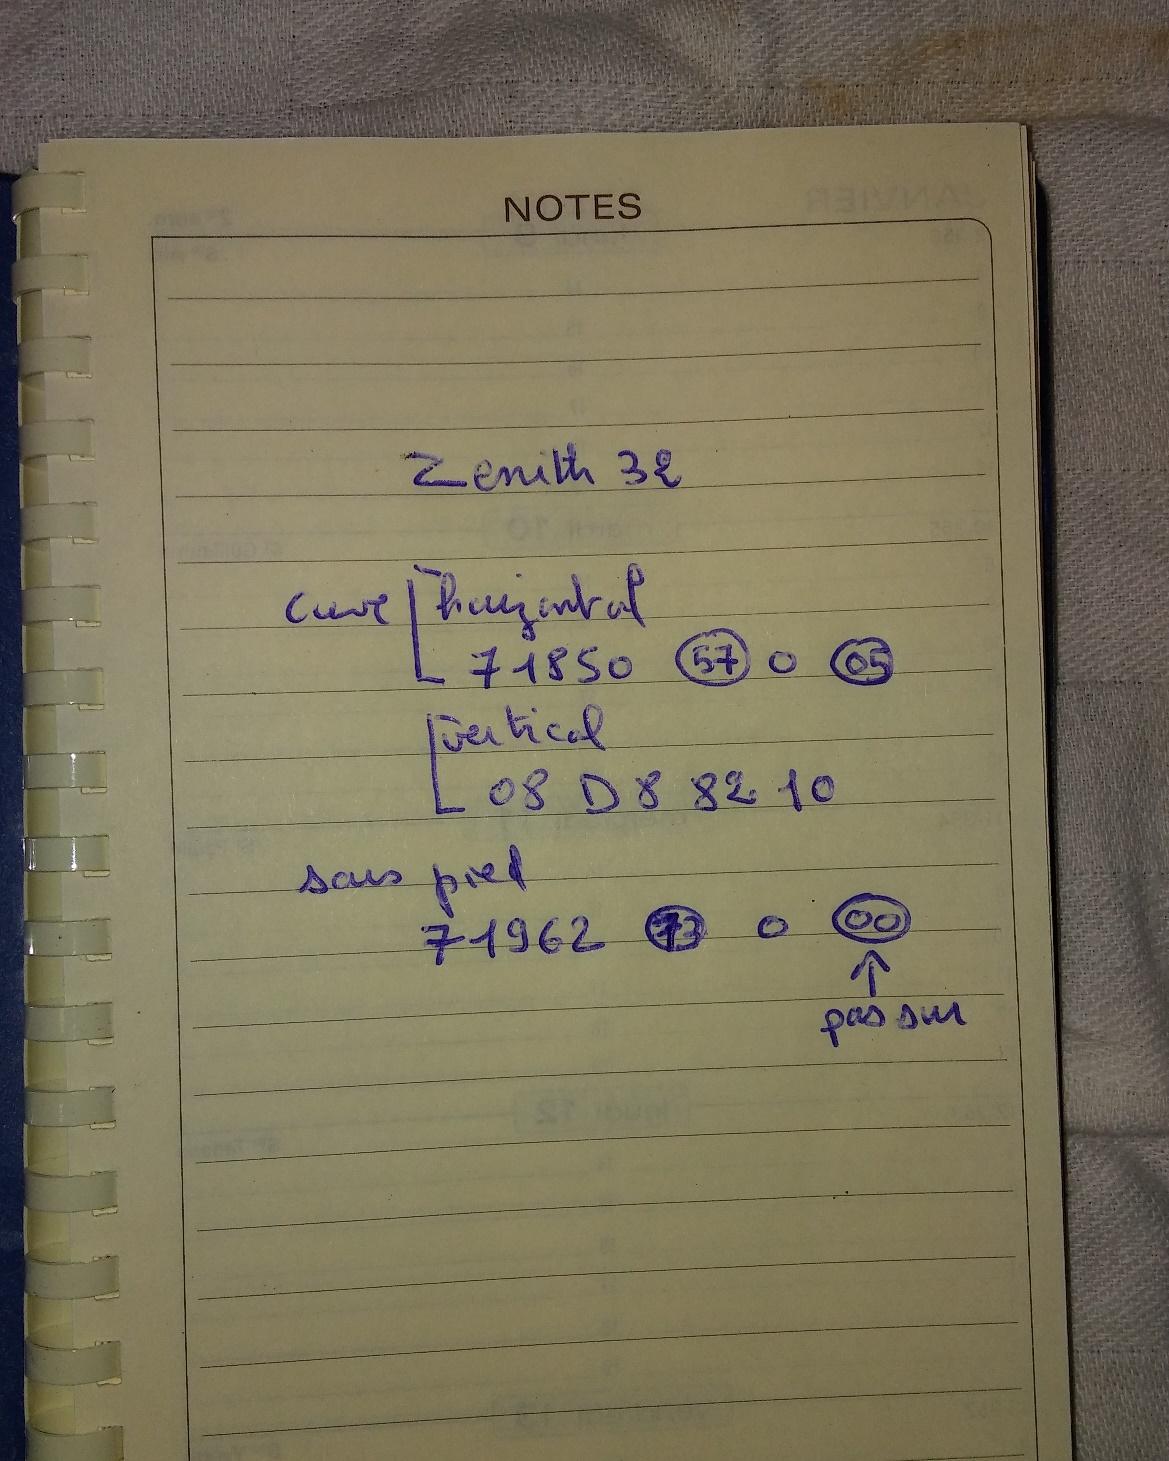 NOTES
Zenith 32
cuve horizontal
71850 57 0 05
vertical
08 D 8 82 10
sous pied
71962 73 0 00
↑
pas sur